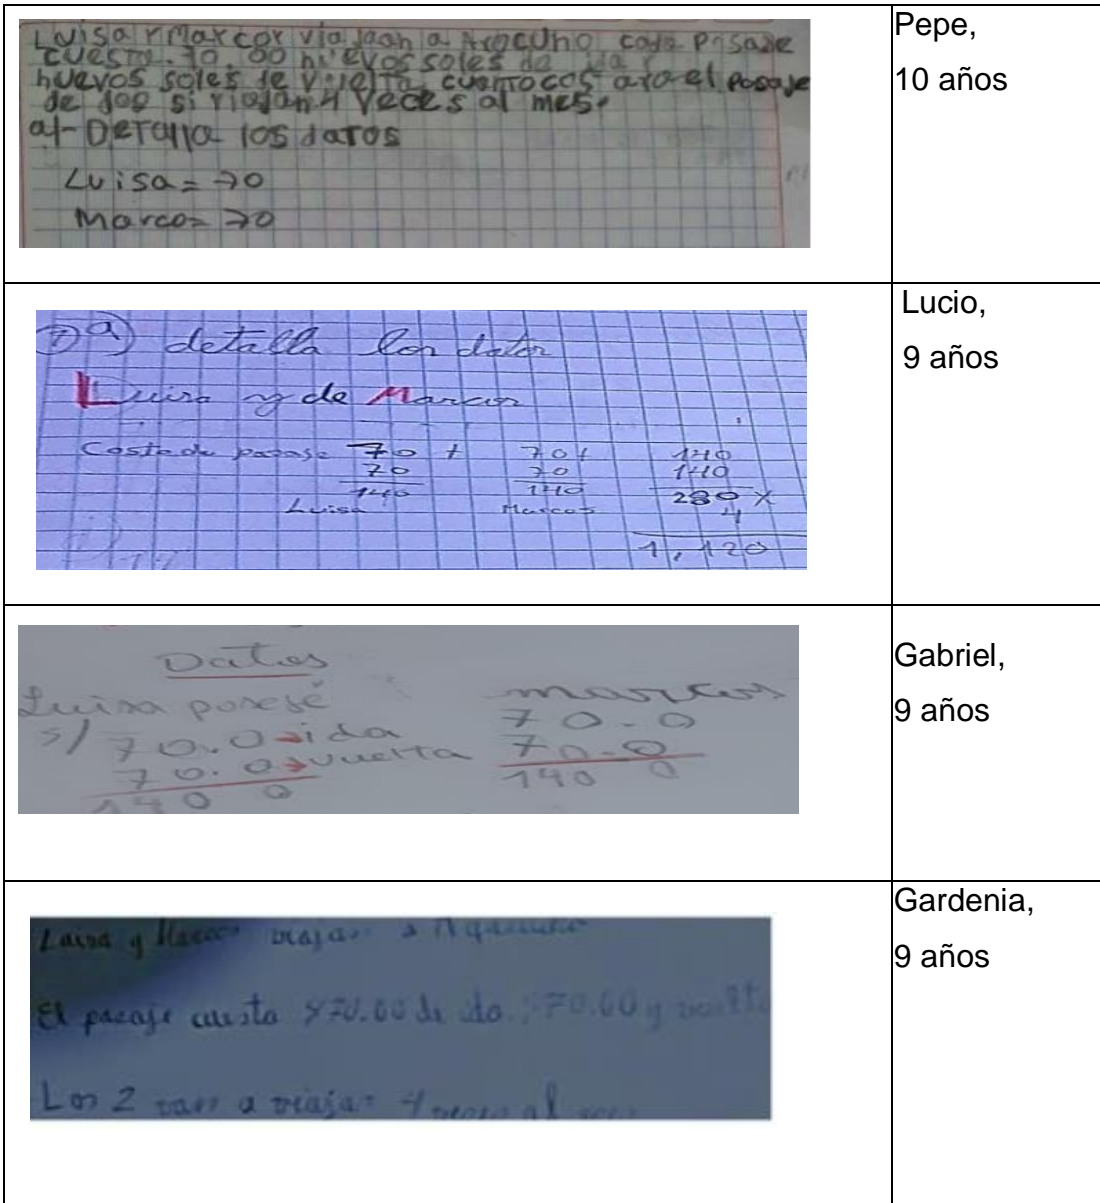 Luisa y Marcos viajaan a cada Pasaje
cuesta. 70.00 nuevos soles de ida y
nuevos soles de vuelta el Posaje
de dos si viajan 4 veces al mes.
a)- Detalla los datos
Luisa = 70
Marco= 70
Pepe,
10 años
a) detalla los datos
Luisa y de Marcos
Costo de pasaje 70 + 70+ 140
70 70 140
140 140 280 X
Luisa Marcos 4
1,120
Lucio,
9 años
Datos
Luisa marcos
s/ 70.0→ida 70.0
70.0→vuelta 70.0
140 0 140 0
Gabriel,
9 años
Luisa y Marcos viajan a
El pasaje cuesta 70.00 de ida 70.00 y vuelta
Los 2 van a viajar 4 veces al mes
Gardenia,
9 años